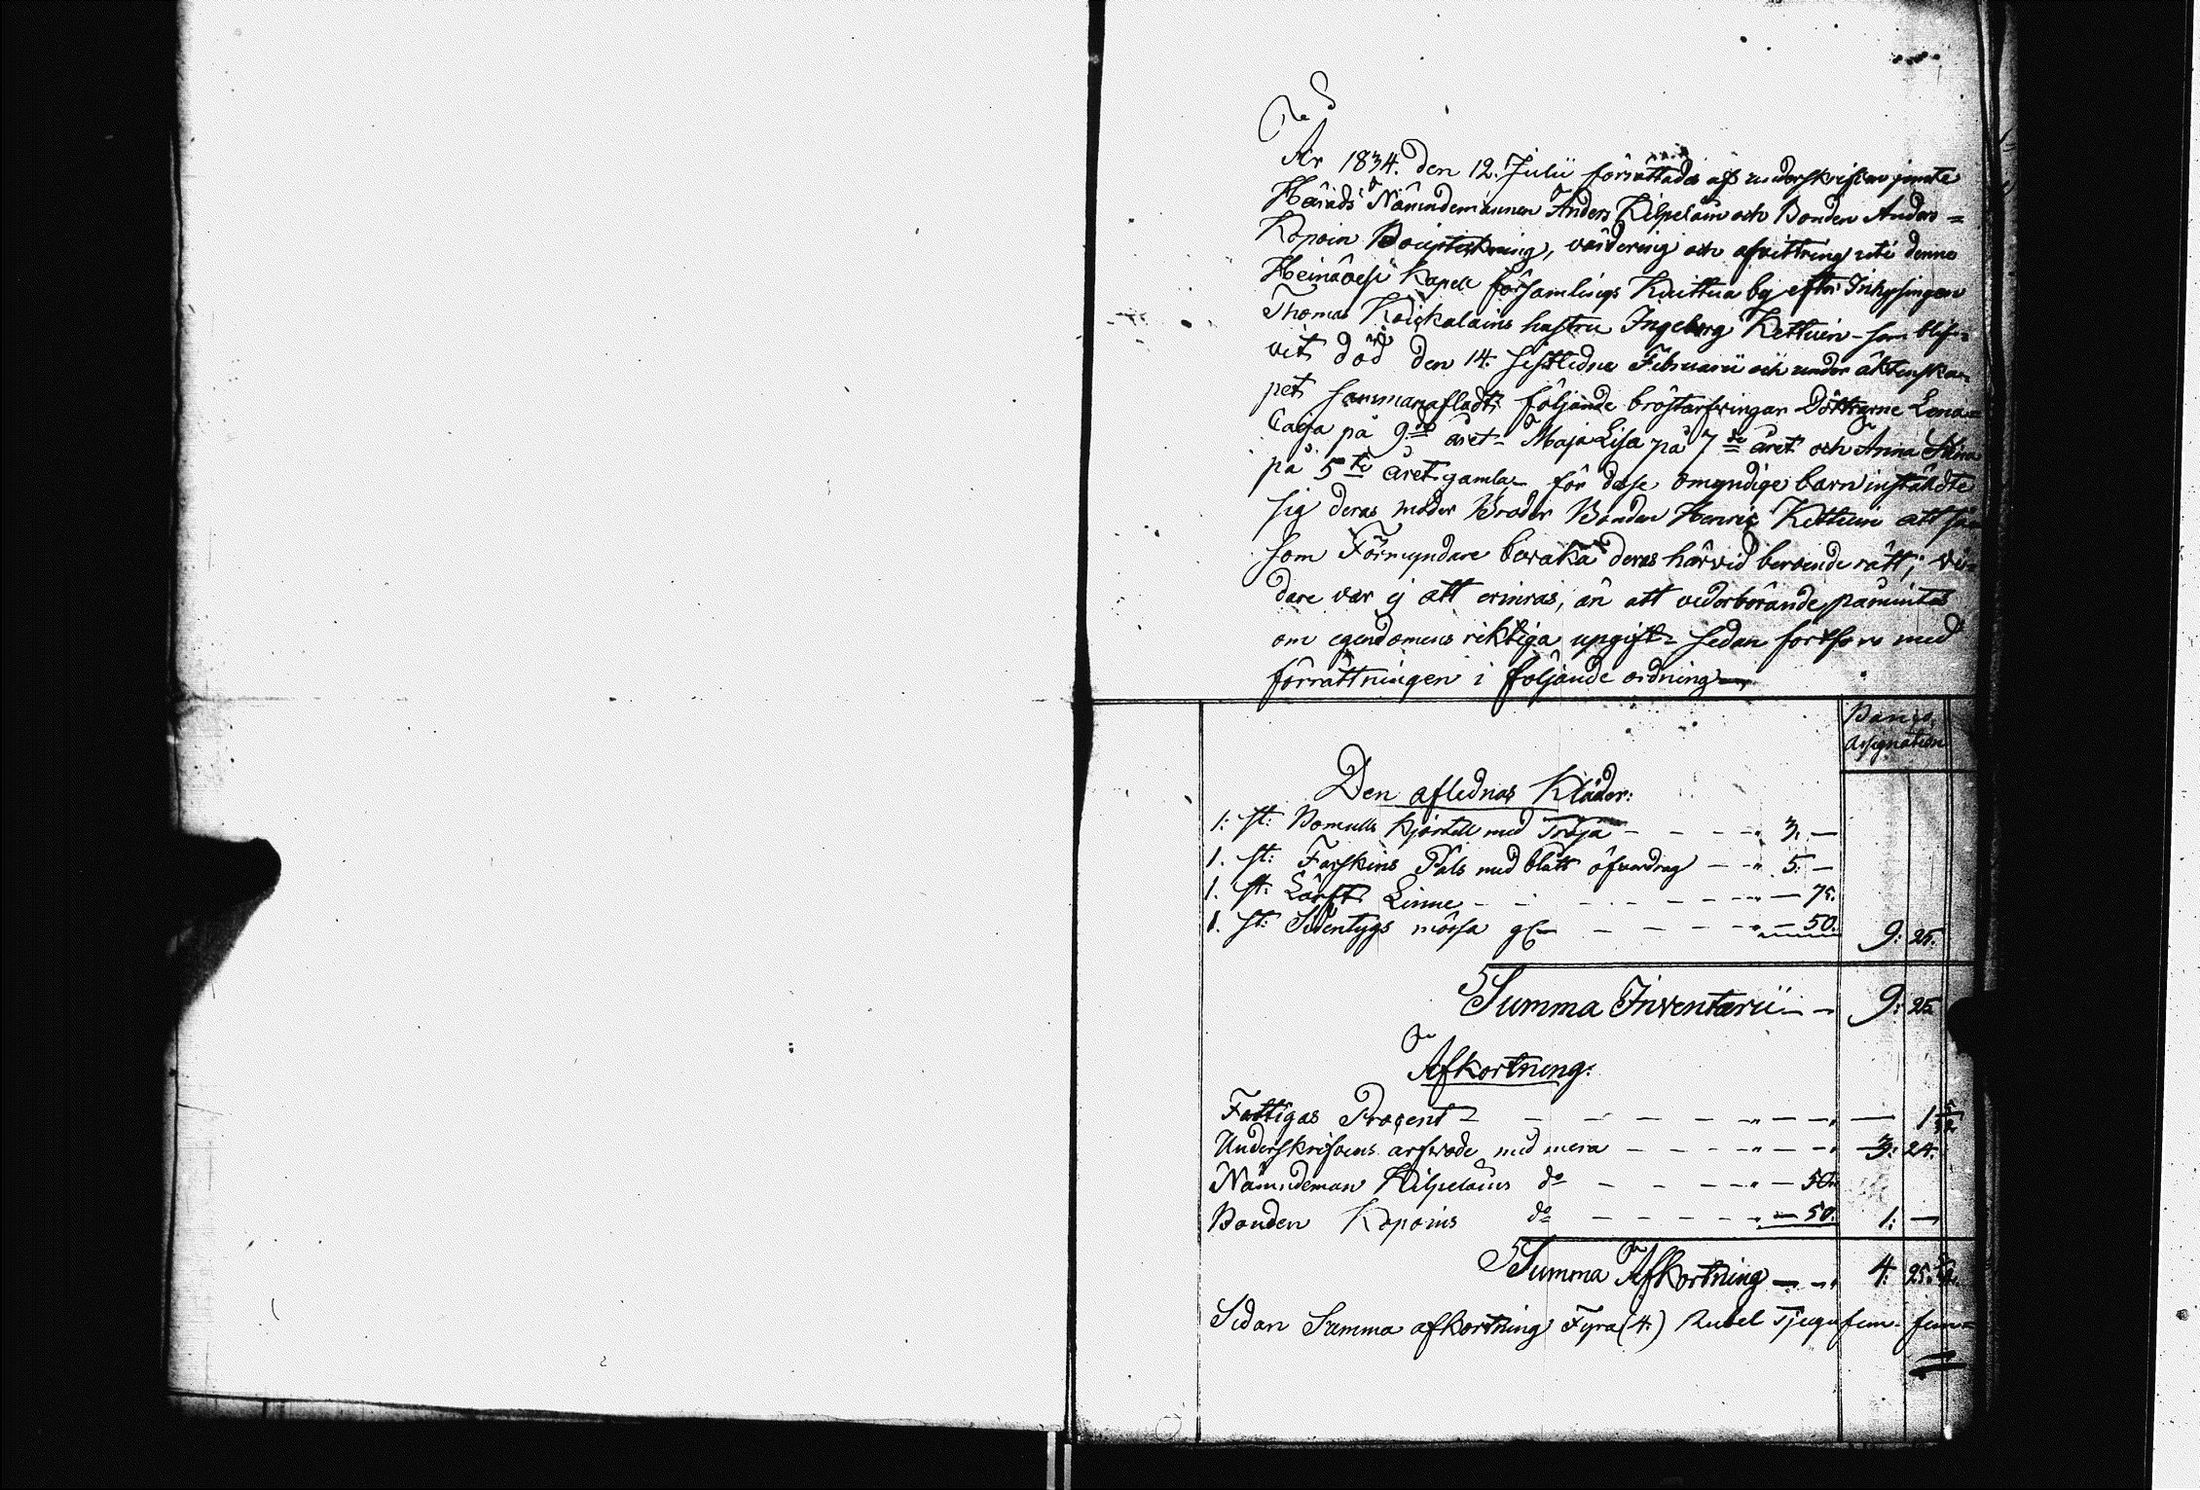 År 1834. den 12. Julii förrättades af underskrifven jemte
Härads Nämndemannen Anders Kilpeläin och Bonden Anders
Kopoin Bouptekning, värdering och afvittring uti denne
Heinävesi Kapell församlings Kuittua by efter Inhysingen
Thomas Koickalains hustru Ingeborg Kettuin - som blif-
vit död den 14. sistledne Februarii och under äktenska-
pet sammanafladt följande bröstarfvingar Döttrarne Lena
Caija på 9de året - Maja Lisa på 7de året och Anna Stina
på 5te året gamla - för dese omyndige barn instäldte
sig deras moder Broder Bonden Henric Kettuin att så
som Förmyndare bevaka deras härvid beroende rätt; vi-
dare var ej att erinras, än att vederbörande påmintes
om egendomens riktiga upgift - sedan fortfors med
förrättningen i följande ordning
Banco
Assignation
Den aflednas Kläder:
1: st: Bomulls Kjortell med Tröja - - - - " 3. —
1. st: Fårskins Päls med blått öfverdrag - - " 5. —
1. st: Lärft Linne - - - - - - - " — 75.
1. st: Sidentygs mössa - - - - - " — 50. 9: 25.
Summa Inventarii - - 9: 25
Afkortning:
Fattigas Procent - - - - - - " — " — 1 5/32
Underskrifvens arfvode med mera - - - - " — " 3: 24.
Nämndeman Kilpeläins do - - - - " — 50.
Bonden Kopoins do - - - - - " — 50. 1: —
Summa Afkortning — " 4: 25.
Sedan Summa afkortning Fyra (4.) Rubel Tjugufem fem-